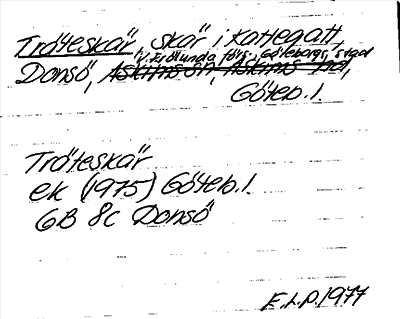 Träteskär, skär i Kattegatt,
V. Frölunda förs., Göteborgs stad
Donsö, Askims sn, Askims hd,
Göteb. l.
Träteskär
ek (1975) Göteb. l.
6B 8c Donsö
E.L.P. 1977